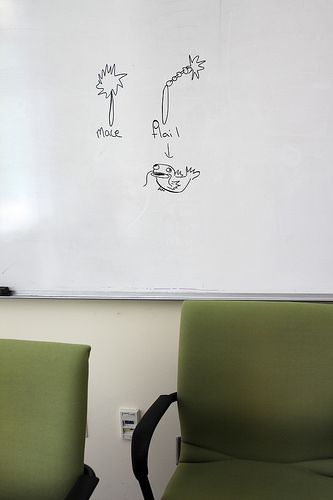 mace
flail